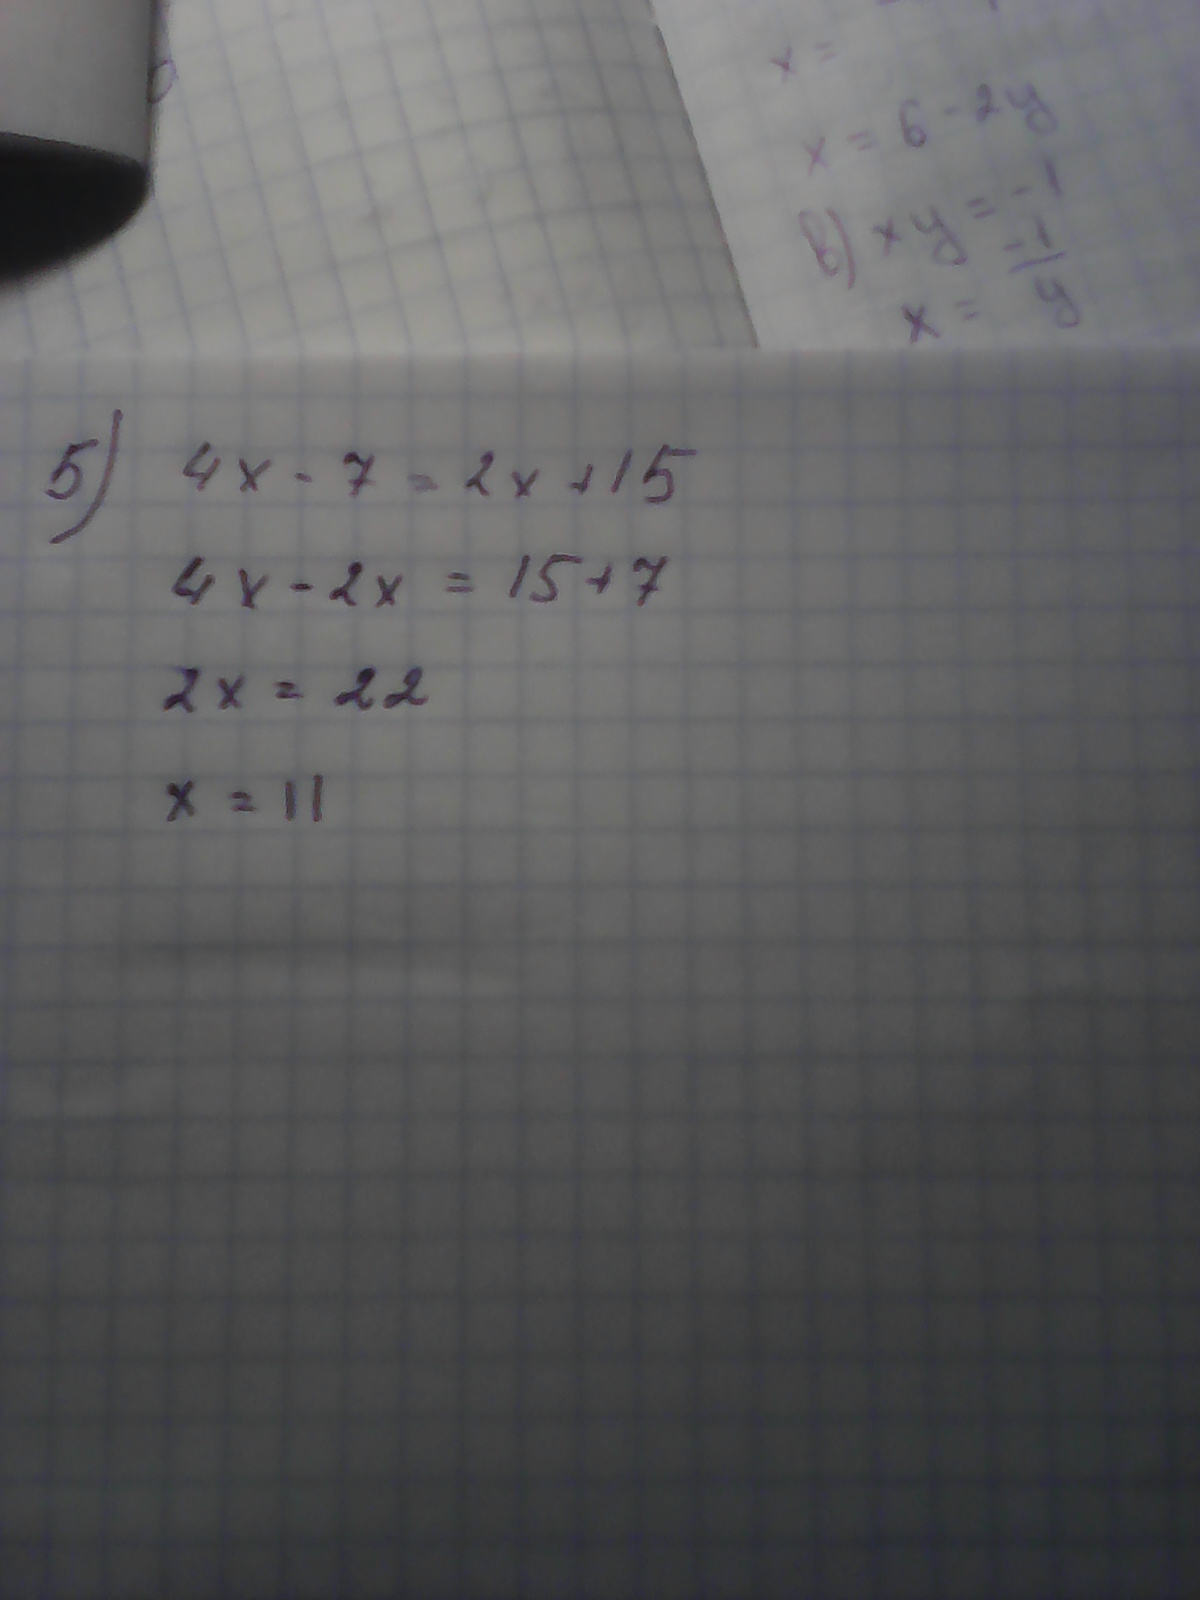 x =
x = 6 - 2y
в) xy = -1
x = -1/y
5) 4x - 7 = 2x + 15
4x - 2x = 15 + 7
2x = 22
x = 11